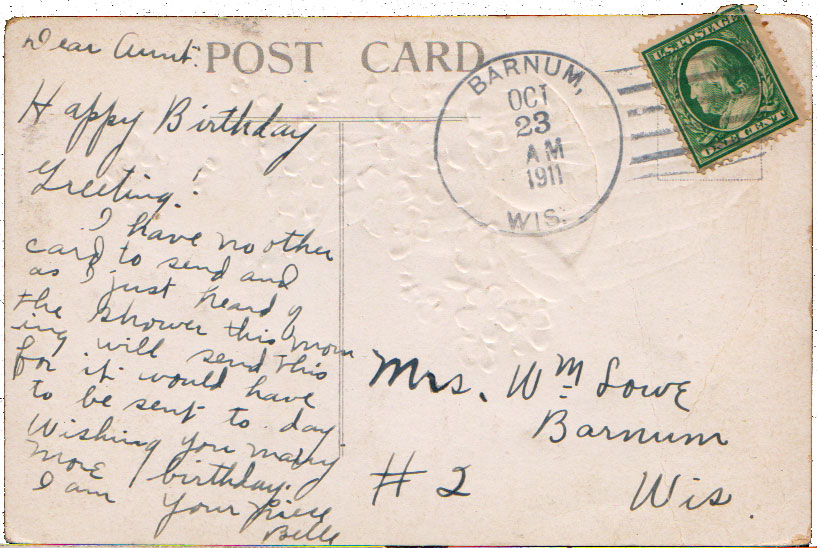 Dear Aunt:
POST CARD
Happy Birthday
Greeting!
I have no other
card to send and
as I just heard of
the shower this morn
ing will send this
for it would have
to be sent to day
Wishing you many
more birthday.
I am Your Niece
Belle
BARNUM,
OCT
23
AM
1911
WIS.
U.S. POSTAGE
ONE CENT
Mrs. Wm Lowe
Barnum
# 2 Wis.